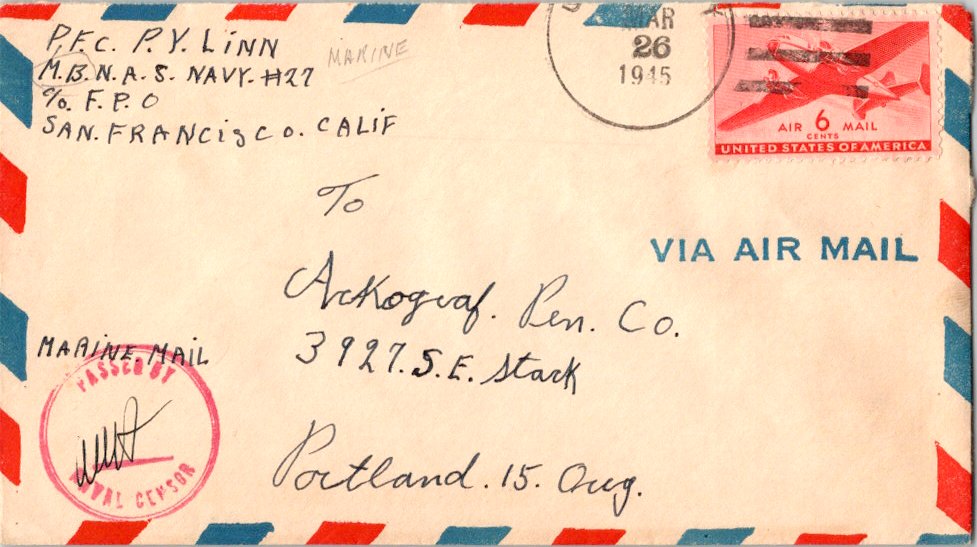 P.F.C. P.Y. LINN
M.B. N.A.S. NAVY. #27
c/o F.P.O
SAN. FRANCISCO. CALIF
MARINE
MAR
26
1945
AIR 6 MAIL
CENTS
UNITED STATES OF AMERICA
VIA AIR MAIL
To
Arkograf. Pen. Co.
3927. S.E. Stark
Portland. 15. Oug.
MARINE. MAIL
PASSED BY
NAVAL CENSOR